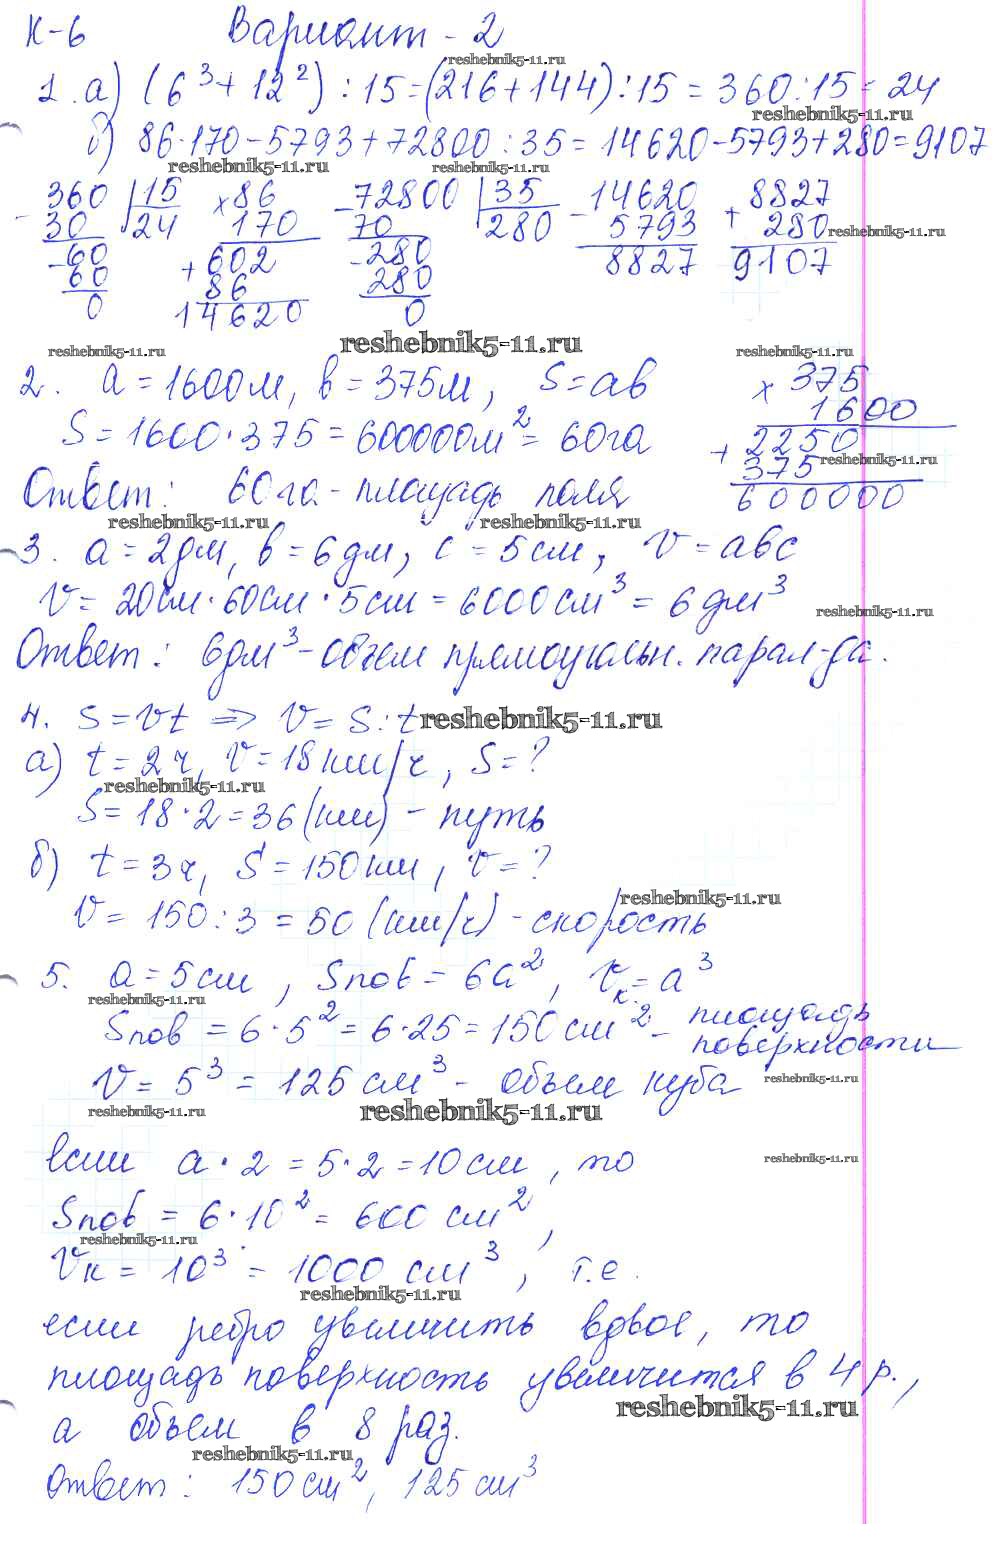 К-6 Вариант - 2
reshebnik5-11.ru
1. а) (6³ + 12²) : 15 = (216 + 144) : 15 = 360 : 15 = 24
reshebnik5-11.ru
б) 86·170 - 5793 + 72800 : 35 = 14620 - 5793 + 280 = 9107
reshebnik5-11.ru reshebnik5-11.ru
360 15 × 86 -72800 35 14620 8827
- 30 24 170 70 280 - 5793 + 280 reshebnik5-11.ru
-60 + 602 -280 8827 9107
60 86 280
0 14620 0
reshebnik5-11.ru reshebnik5-11.ru reshebnik5-11.ru
2. а = 1600м, в = 375м, S = ав × 375
1600
S = 1600 · 375 = 600000м² = 60га + 2250
375 reshebnik5-11.ru
Ответ: 60га - площадь поля 600000
reshebnik5-11.ru reshebnik5-11.ru
3. а = 2дм, в = 6дм, с = 5см, V = авс
V = 20см · 60см · 5см = 6000см³ = 6дм³
reshebnik5-11.ru
Ответ: 6дм³ - объем прямоугольн. парал-да.
4. S = Vt ⇒ V = S : t reshebnik5-11.ru
а) t = 2ч, V = 18км/ч, S = ?
reshebnik5-11.ru
S = 18 · 2 = 36 (км) - путь
б) t = 3ч, S = 150км, V = ?
reshebnik5-11.ru
V = 150 : 3 = 50 (км/ч) - скорость
5. а = 5см, Sпов = 6а², Vк. = а³
reshebnik5-11.ru
Sпов = 6 · 5² = 6·25 = 150см² - площадь
поверхности
V = 5³ = 125см³ - объем куба reshebnik5-11.ru
reshebnik5-11.ru reshebnik5-11.ru
если а · 2 = 5 · 2 = 10см, то reshebnik5-11.ru
Sпов = 6 · 10² = 600 см²,
reshebnik5-11.ru
Vк = 10³ = 1000 см³, т.е.
reshebnik5-11.ru
если ребро увеличить вдвое, то
площадь поверхность увеличится в 4 р.,
reshebnik5-11.ru
а объем в 8 раз.
reshebnik5-11.ru
Ответ: 150см², 125см³